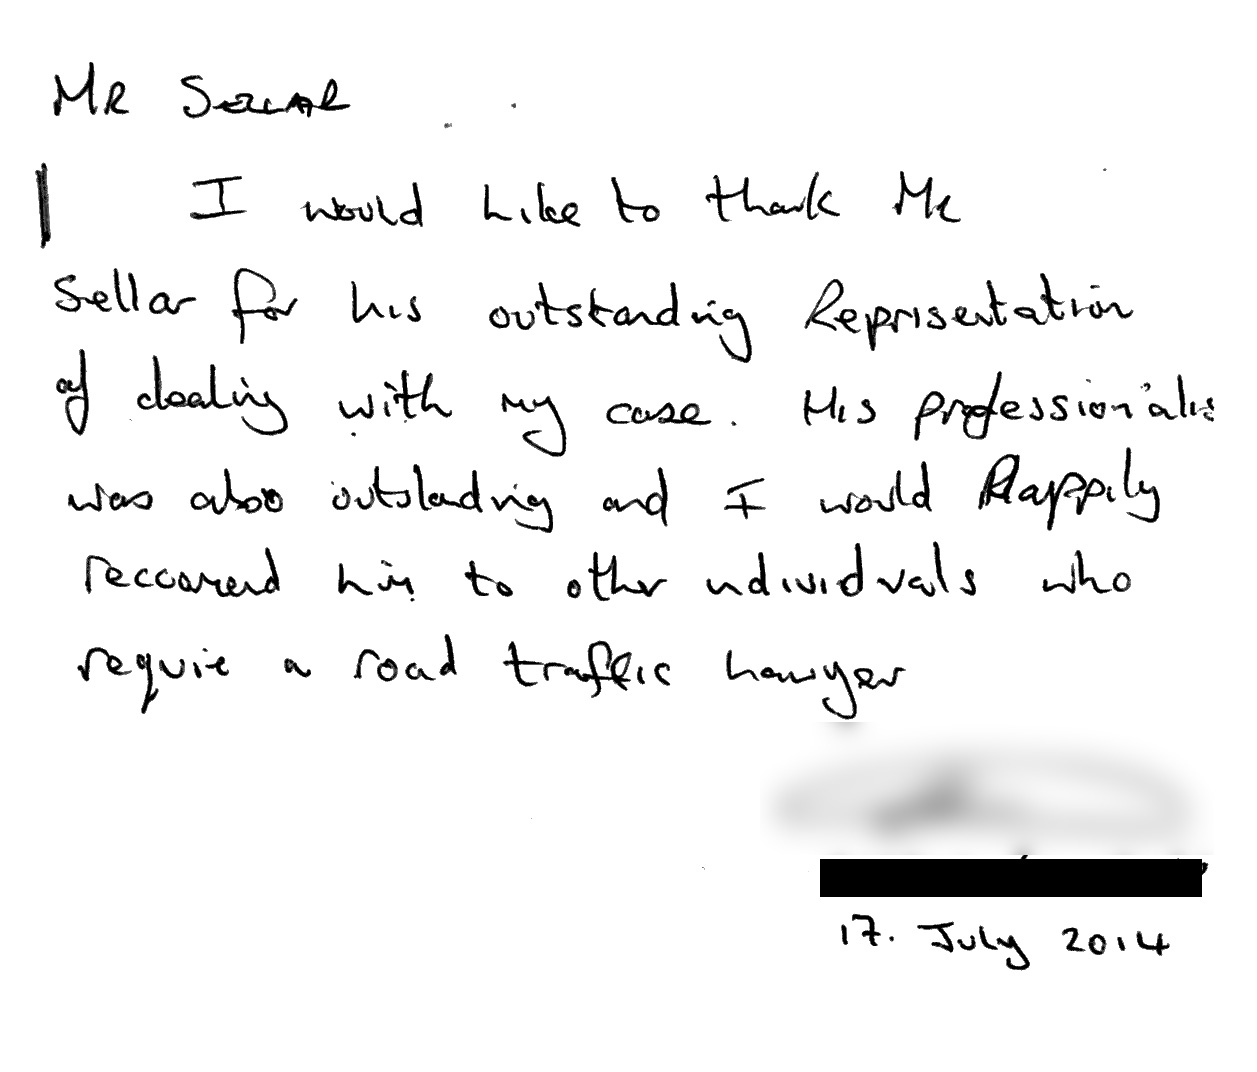 MR SELLAR
I would Like to thank Mr
Sellar for his outstanding Reprisentation
of dealing with my case. His professionalis
was also outstanding and I would Happily
reccomend him to other individuals who
require a road traffic Lawyer
17. July 2014